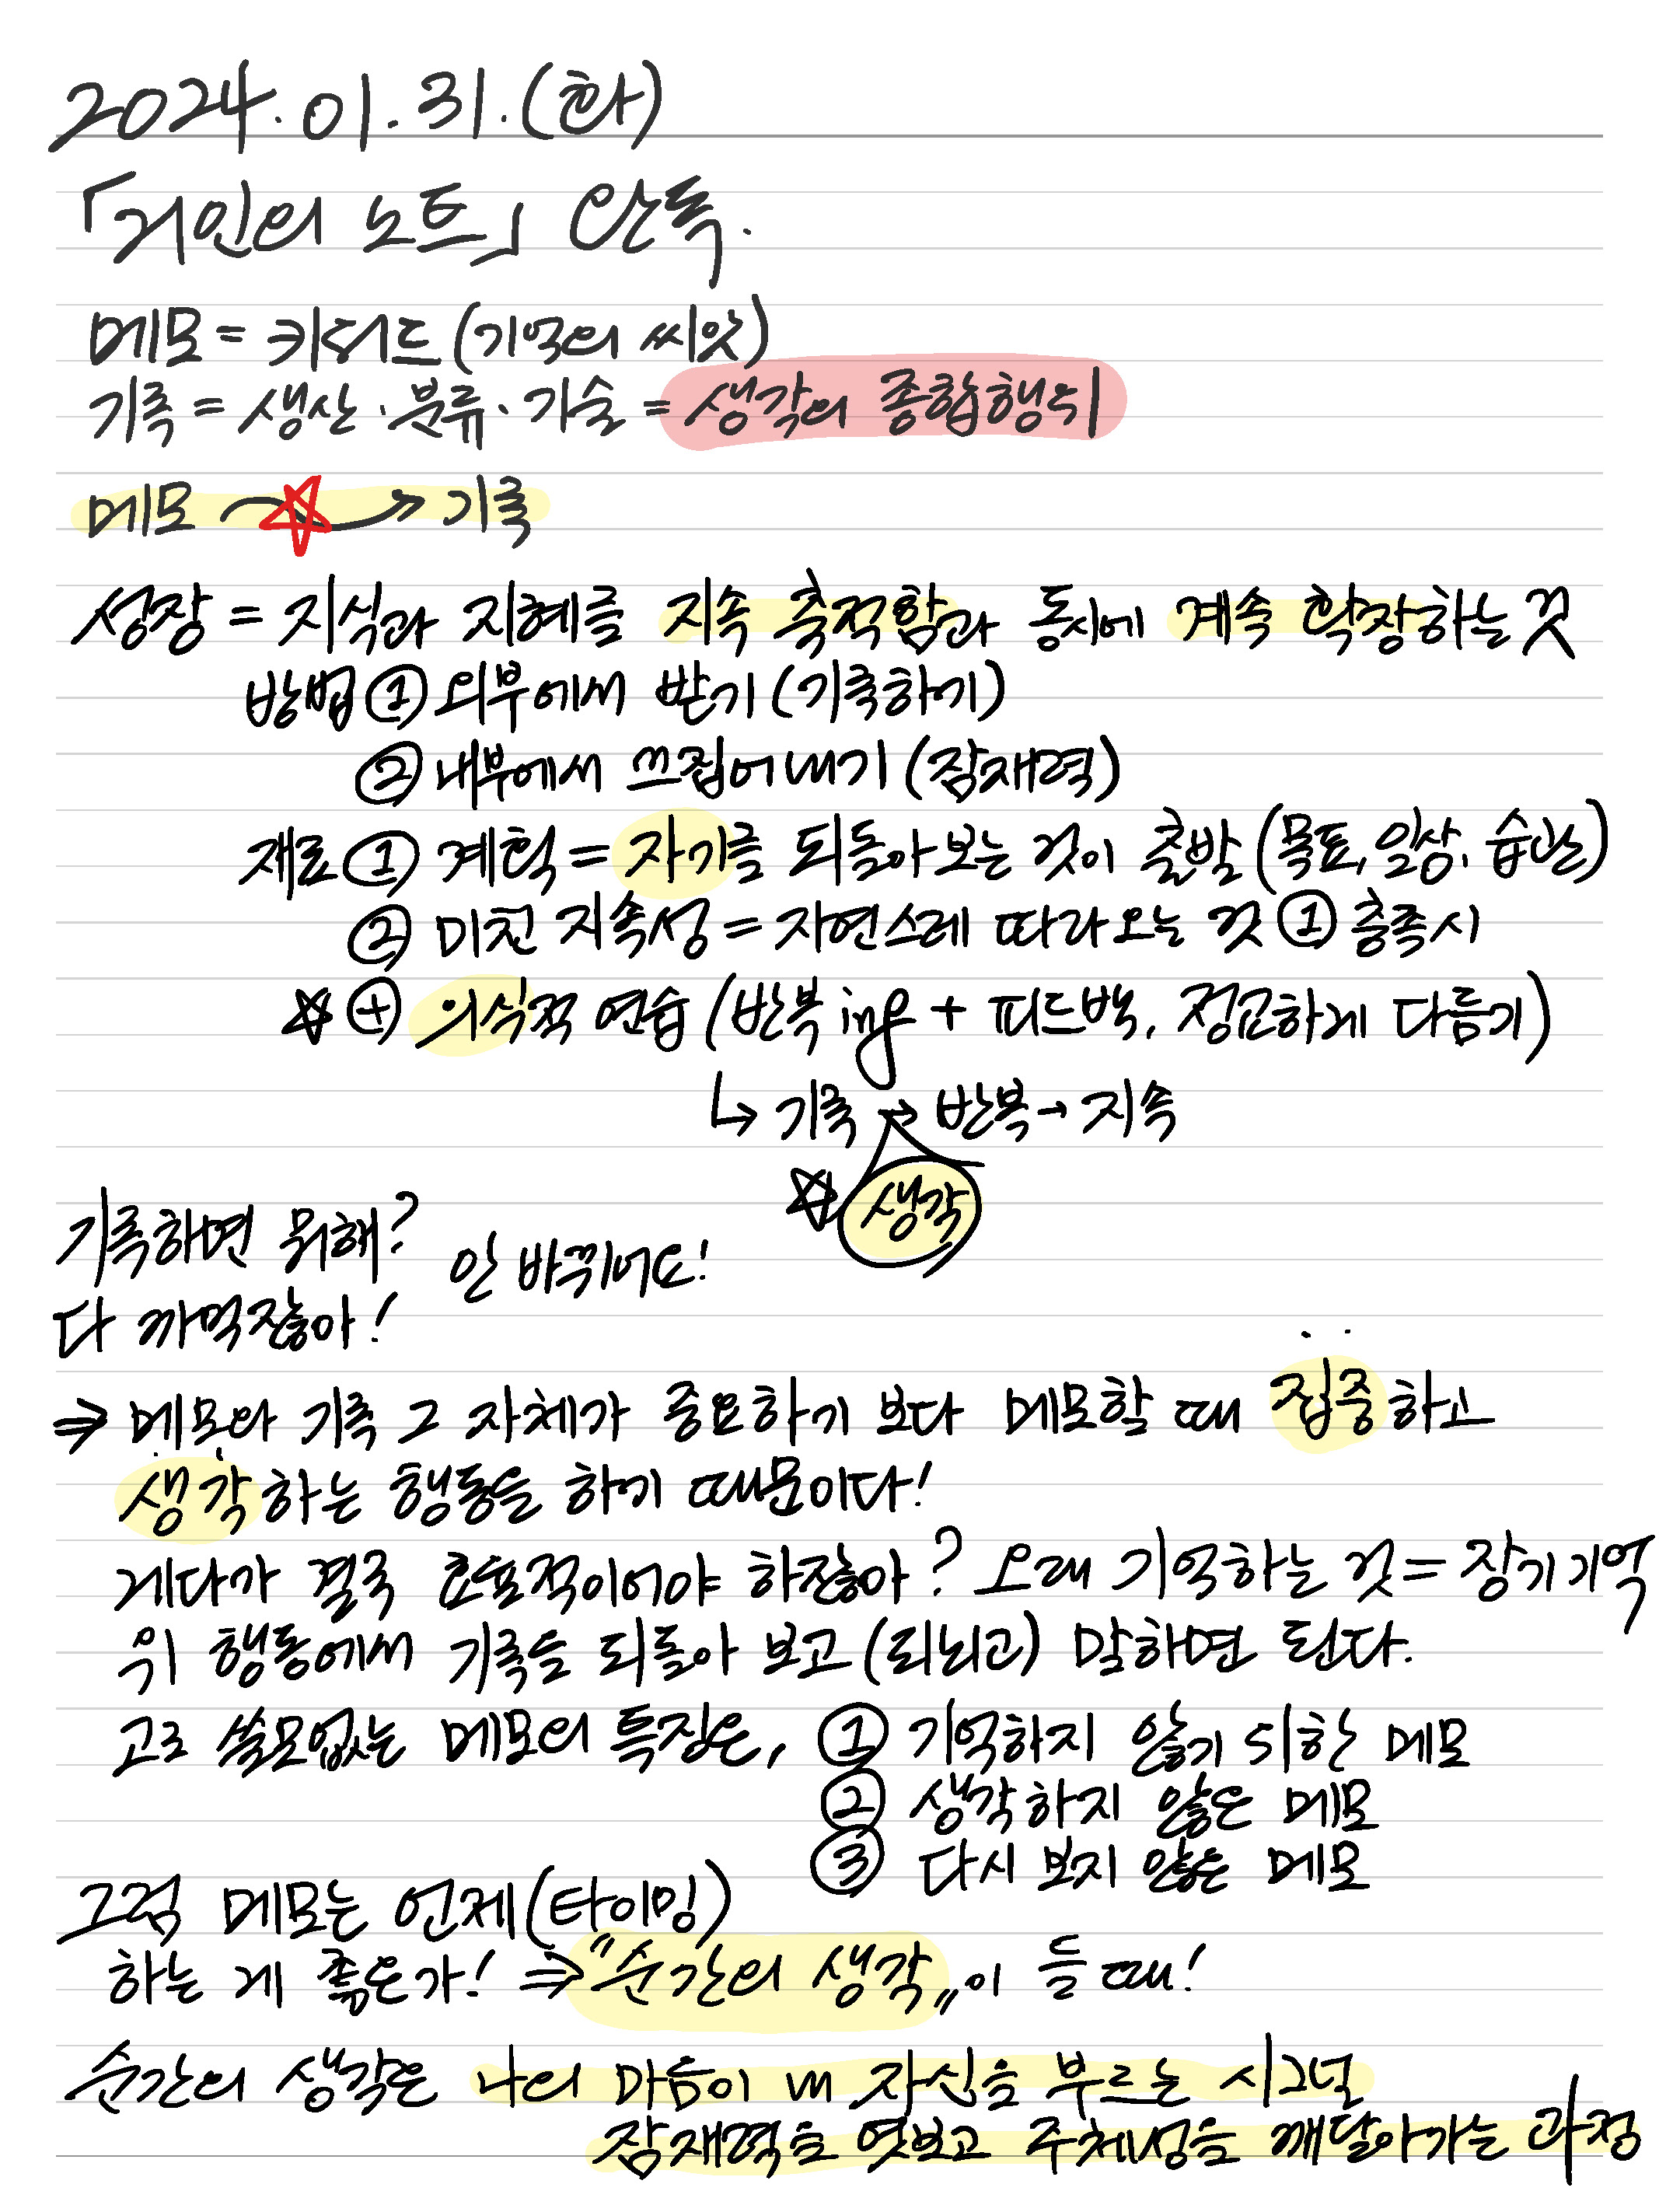 2024.01.31.(화)
「거인의 노트」 완독.
메모 = 키워드 (기억의 씨앗)
기록 = 생산·분류·기술 = 생각의 종합행위
메모 → 기록
성장 = 지식과 지혜를 지속 축적함과 동시에 계속 확장하는 것
방법 ① 외부에서 받기 (기록하기)
② 내부에서 끄집어내기 (잠재력)
재료 ① 계획 = 자기를 되돌아보는 것이 출발 (목표, 일상, 습관)
② 미친 지속성 = 자연스레 따라오는 것 ① 충족시
☆ ⊕ 의식적 연습 (반복 ing + 피드백, 정교하게 다듬기)
↳ 기록 → 반복 → 지속
☆ 생각
기록하면 뭐해? 안 바뀌어요!
다 까먹잖아!
⇒ 메모와 기록 그 자체가 중요하기 보다 메모할 때 집중하고
생각하는 행동을 하기 때문이다!
게다가 결국 효율적이어야 하잖아? 오래 기억하는 것 = 장기기억
위 행동에서 기록을 되돌아 보고 (되뇌고) 말하면 된다.
고로 쓸모없는 메모의 특징은, ① 기억하지 않기 위한 메모
② 생각하지 않은 메모
③ 다시 보지 않은 메모
그럼 메모는 언제 (타이밍)
하는 게 좋은가! ⇒ "순간의 생각"이 들 때!
순간의 생각은 나의 마음이 내 자신을 부르는 시그널
잠재력을 엿보고 주체성을 깨달아가는 과정